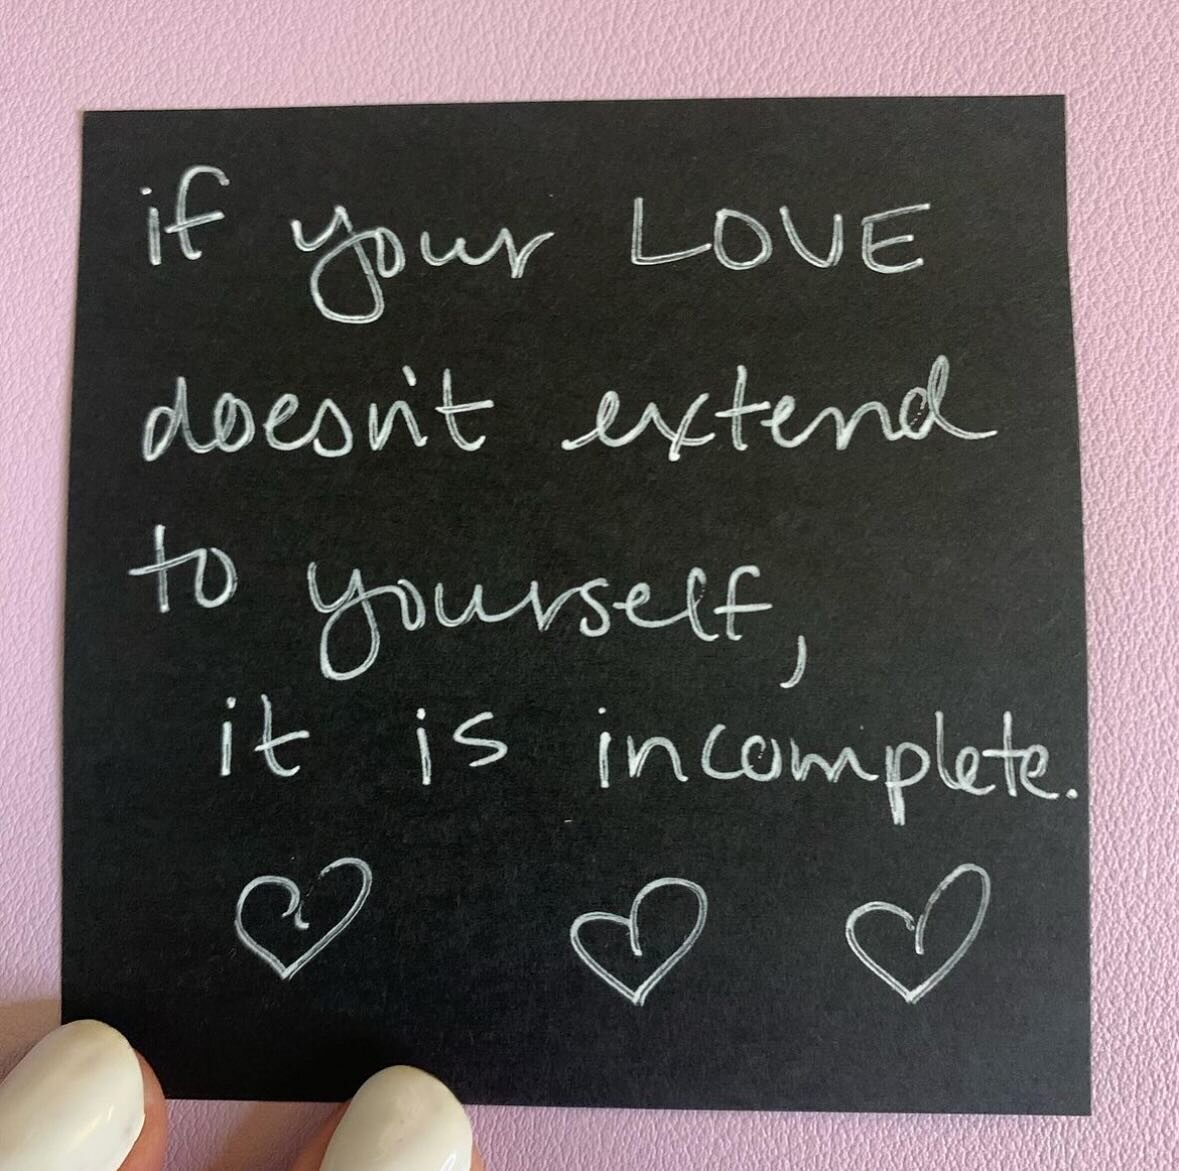 if your LOVE
doesn't extend
to yourself,
it is incomplete.